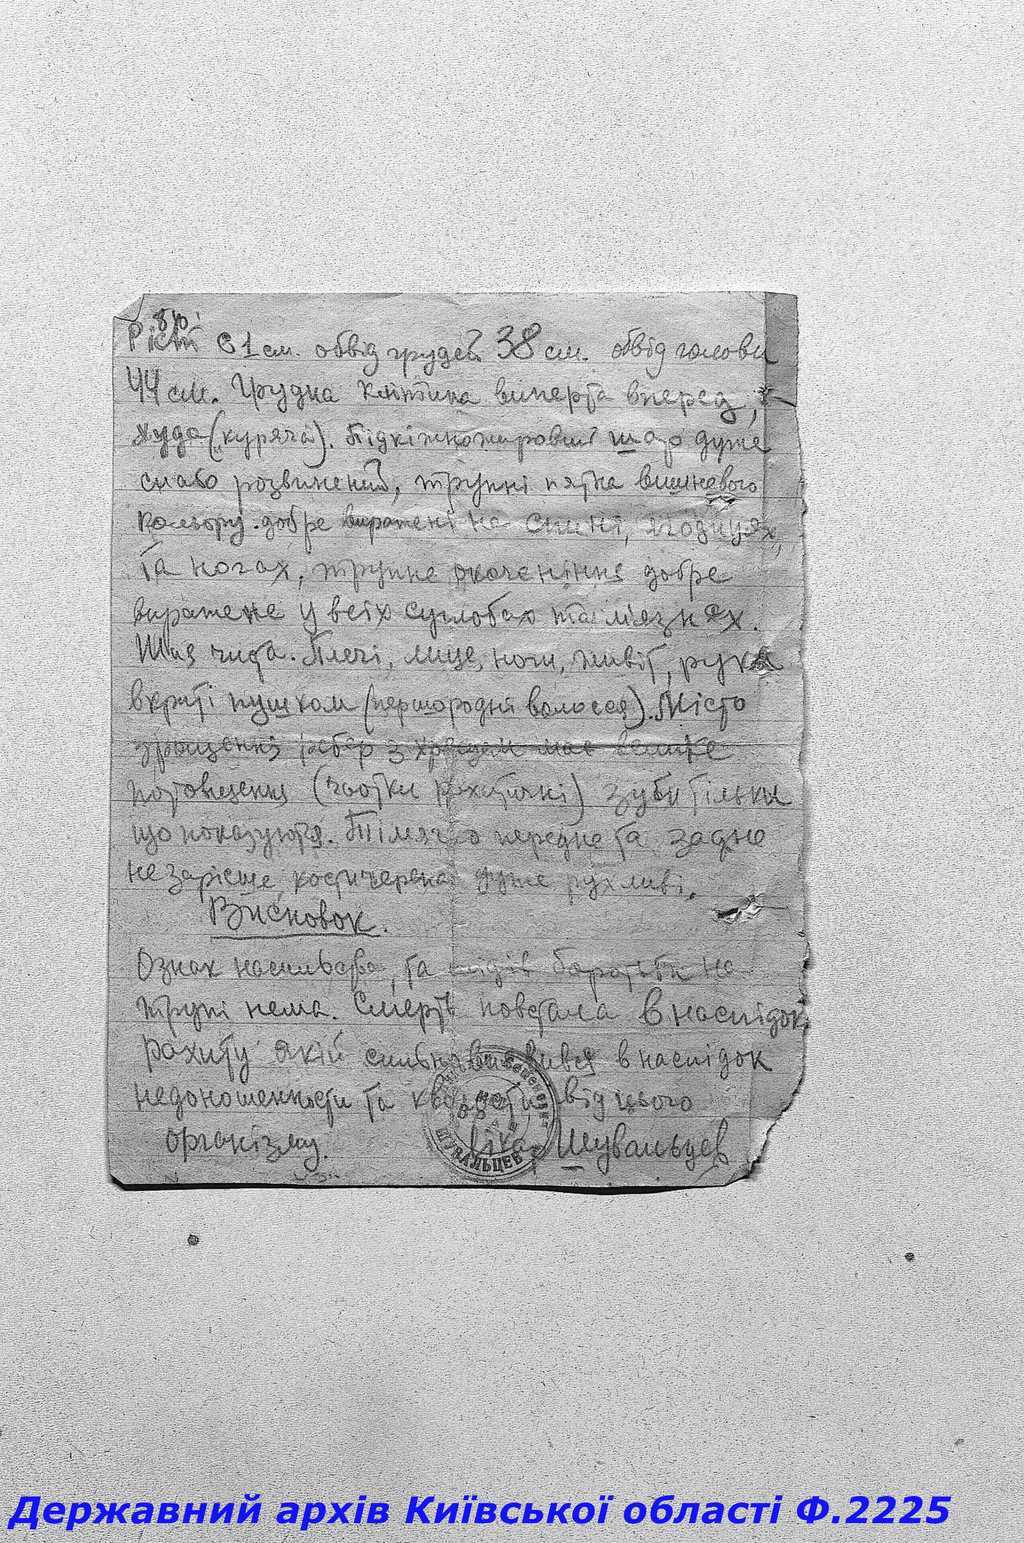 Ріст 61 см. обвід грудей 38 см. обвід голови
44 см. Грудна клітина виперта вперед,
худа („куряча). Підкіжножировий шар дуже
слабо розвинений, трупні пятна вишневого
кольору добре виражені на спині, ягодицях,
та ногах, трупне окоченіння добре
виражене у всіх суглобах та мязнях.
Шия чиста. Плечі, лице, ноги, живіт, рука
вкриті пушком (першородня волосся). Місто
зрощення ребер з хрящем має велике
потовщення (чотки рахітичні) зуби тільки
що показуются. Тімячко переднє та заднє
не зарісше, кости черепа дуже рухливі.
Висновок.
Ознак насильства, та слідів боротьби на
трупі нема. Смерть повстала внаслідок
рахіту якій сильно виявився внаслідок
недоношенности та кволости від цього
організму. лікар Шувальцев
ШУВАЛЬЦЕВ
Державний архів Київської області Ф.2225